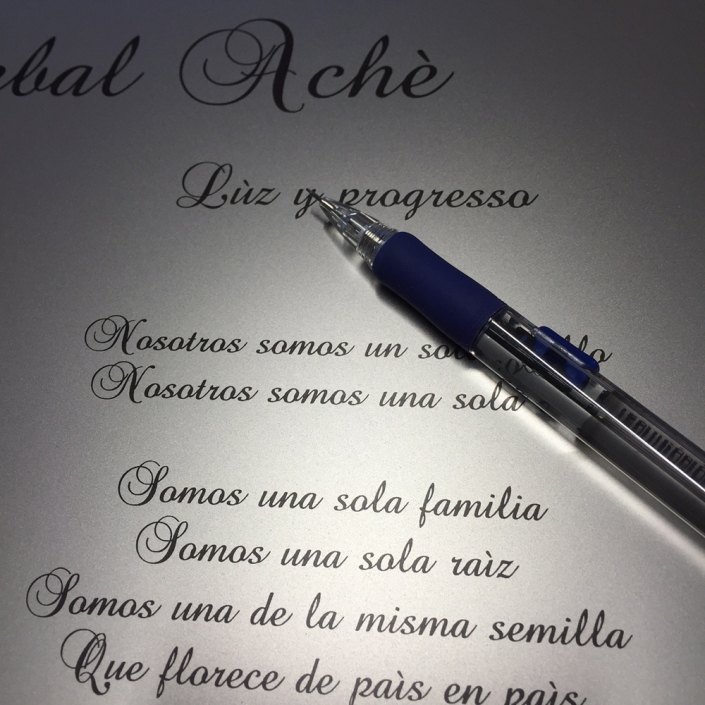 Achè
Lùz y progresso
Nosotros somos un
Nosotros somos una sola
Somos una sola familia
Somos una sola raìz
Somos una de la misma semilla
Que florece de paìs en paìs